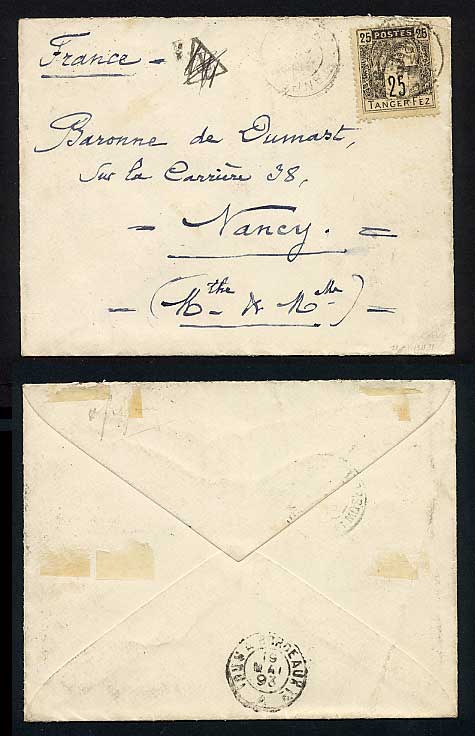 France -
25 POSTES 25
25
TANGER FEZ
Baronne de Dumast,
Sur la Carrière 38,
- Nancy. =
- (Mthe & Mlle) =
BORDEAUX